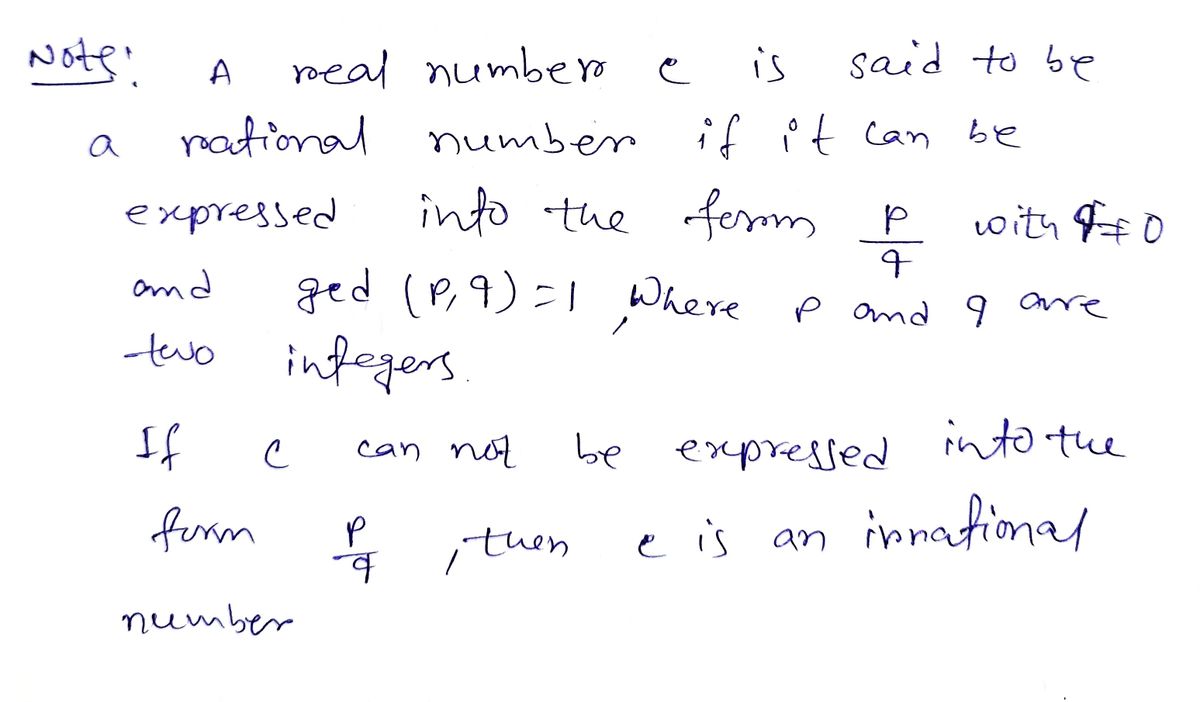 Note: A real number c is said to be
a rational number if it can be
expressed into the form p/q with q≠0
and gcd (p,q)=1, Where p and q are
two integers.
If c can not be expressed into the
form p/q, then c is an irrational
number